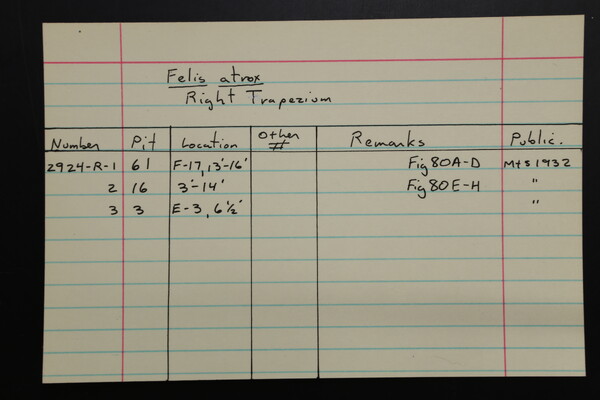 Felis atrox
Right Trapezium
Number Pit Location Other # Remarks Public.
2924-R-1 61 F-17, 13'-16' Fig 80A-D M+S 1932
2 16 3'-14' Fig 80E-H "
3 3 E-3, 6½' "